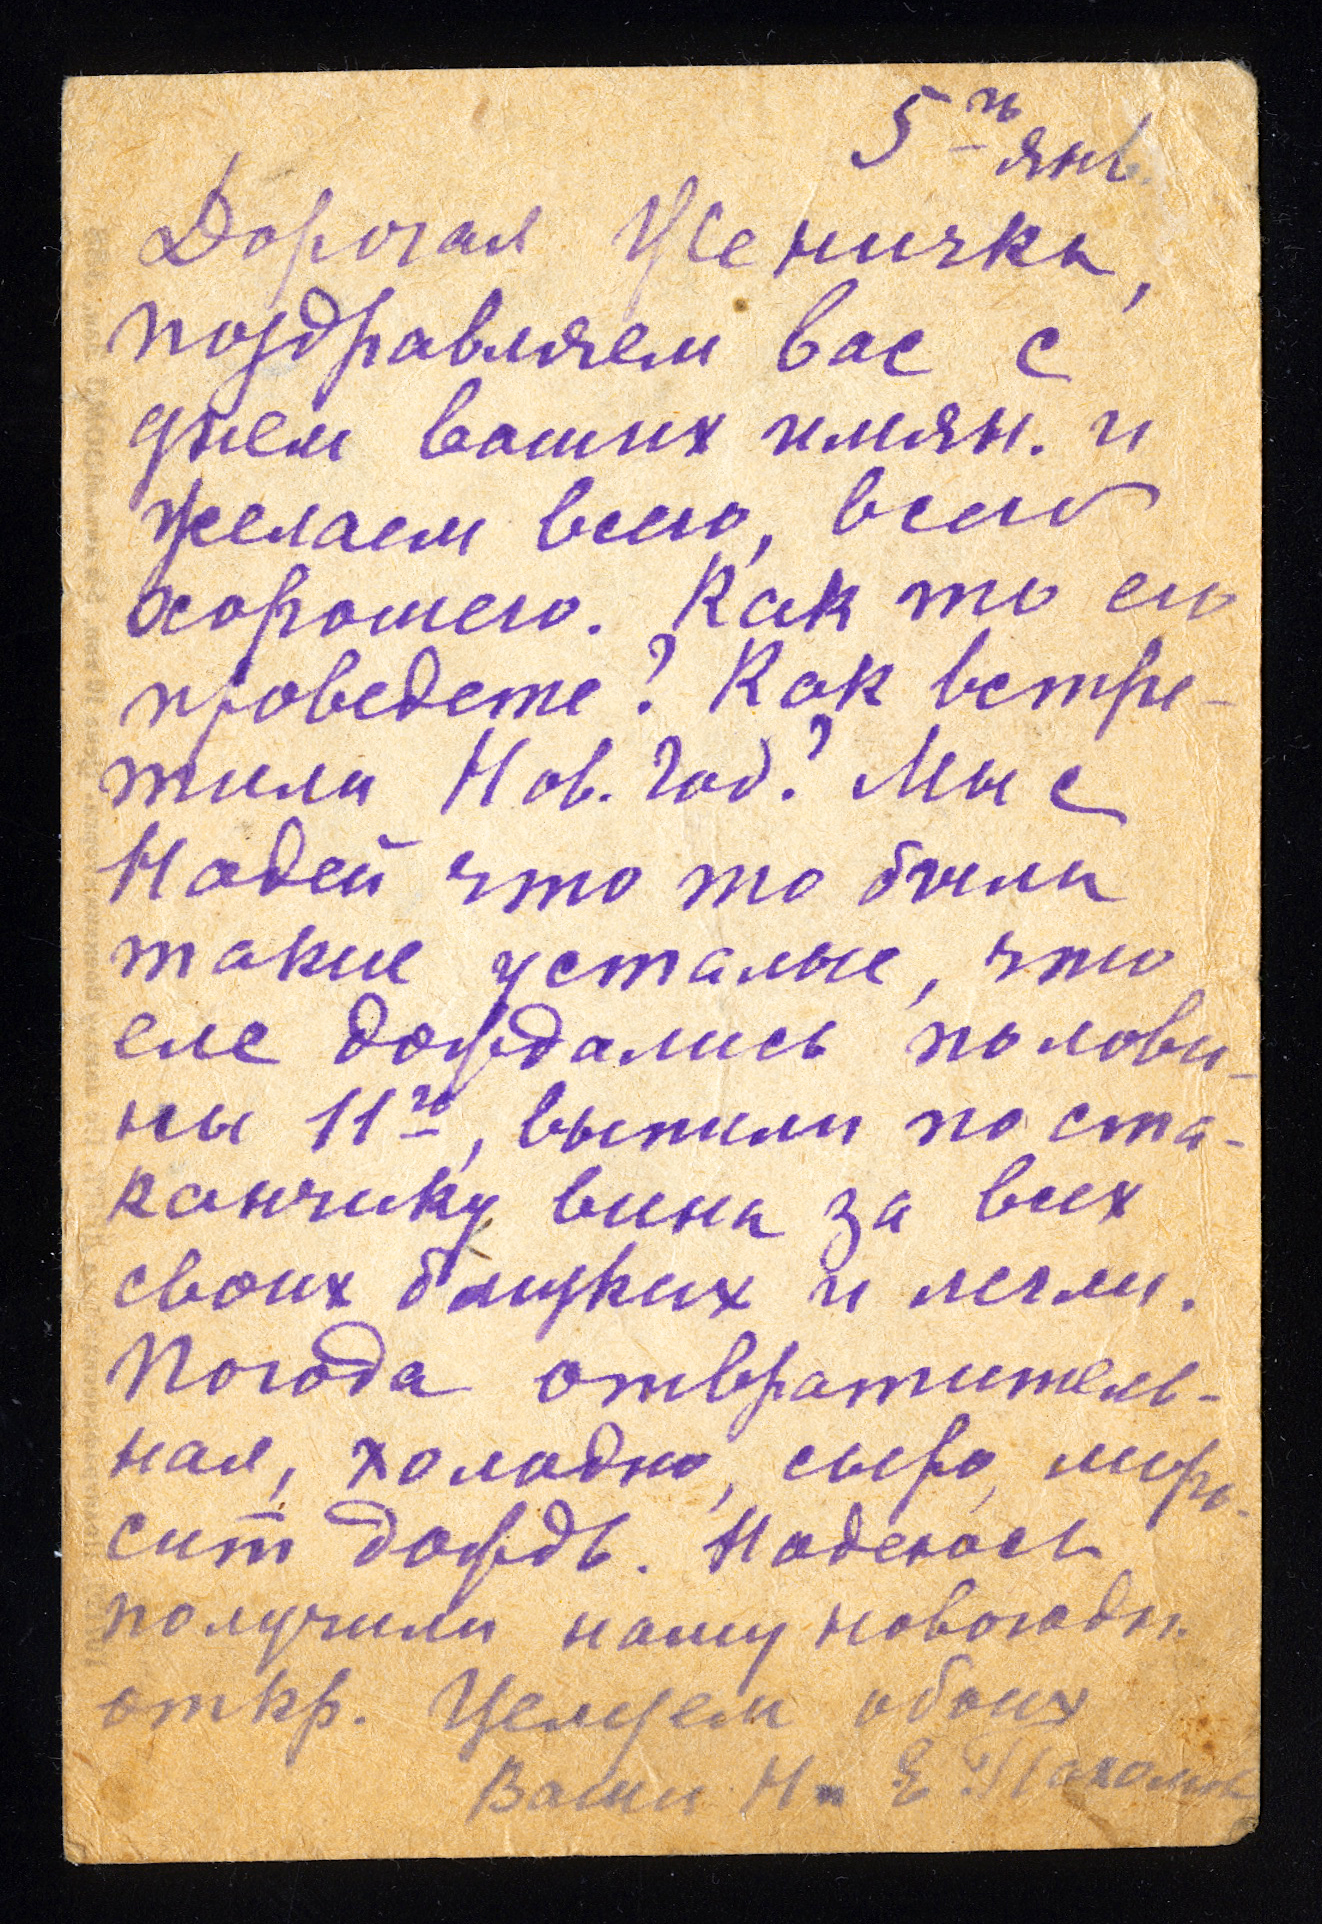 5го янв.
Дорогая Женичка,
поздравляем вас с
днем ваших имян. и
желаем всего, всего
хорошего. Как то его
проведете? Как встре-
тили Нов. Год? Мы с
Надей что то были
такие усталые, что
еле дождались полови-
ны 11го, выпили по ста-
канчику вина за всех
своих близких и легли.
Погода отвратитель-
ная, холодно, сыро, моро-
сит дождь. Надеюсь
получили нашу новогодн.
откр. Целуем обоих
Ваши Н и Е